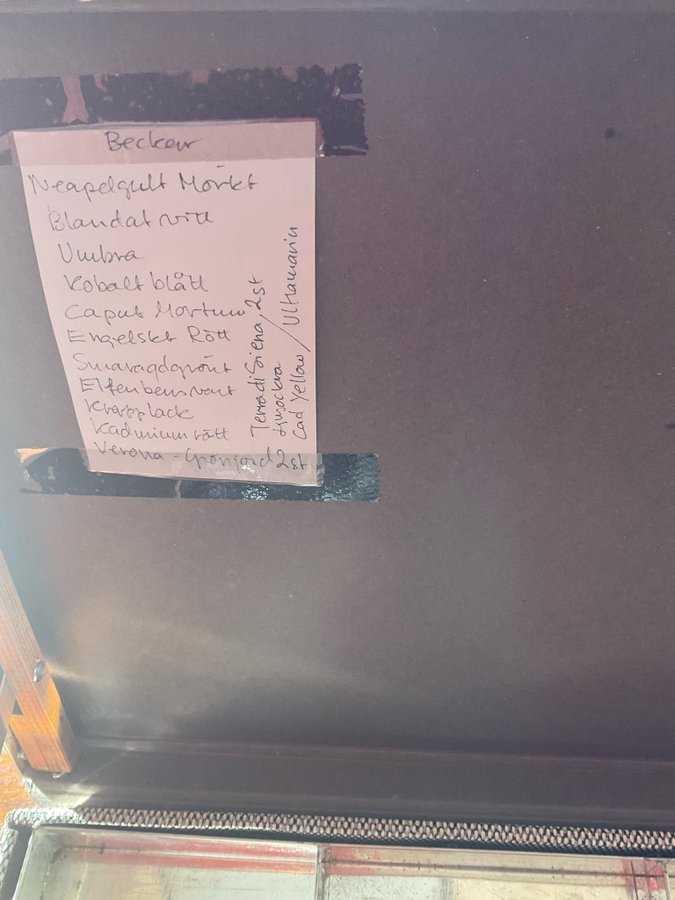 Becker
Neapelgult Mörkt
Blandat vitt
Umbra
Kobalt blått
Caput Mortum
Engelskt Rött
Smaragdgrönt
Elfenbensvart
Krapplack
Kadmium rött
Verona-Grönjord 2st
Terra di Siena, 2st
Ljusockra
Cad Yellow / Ultramarin